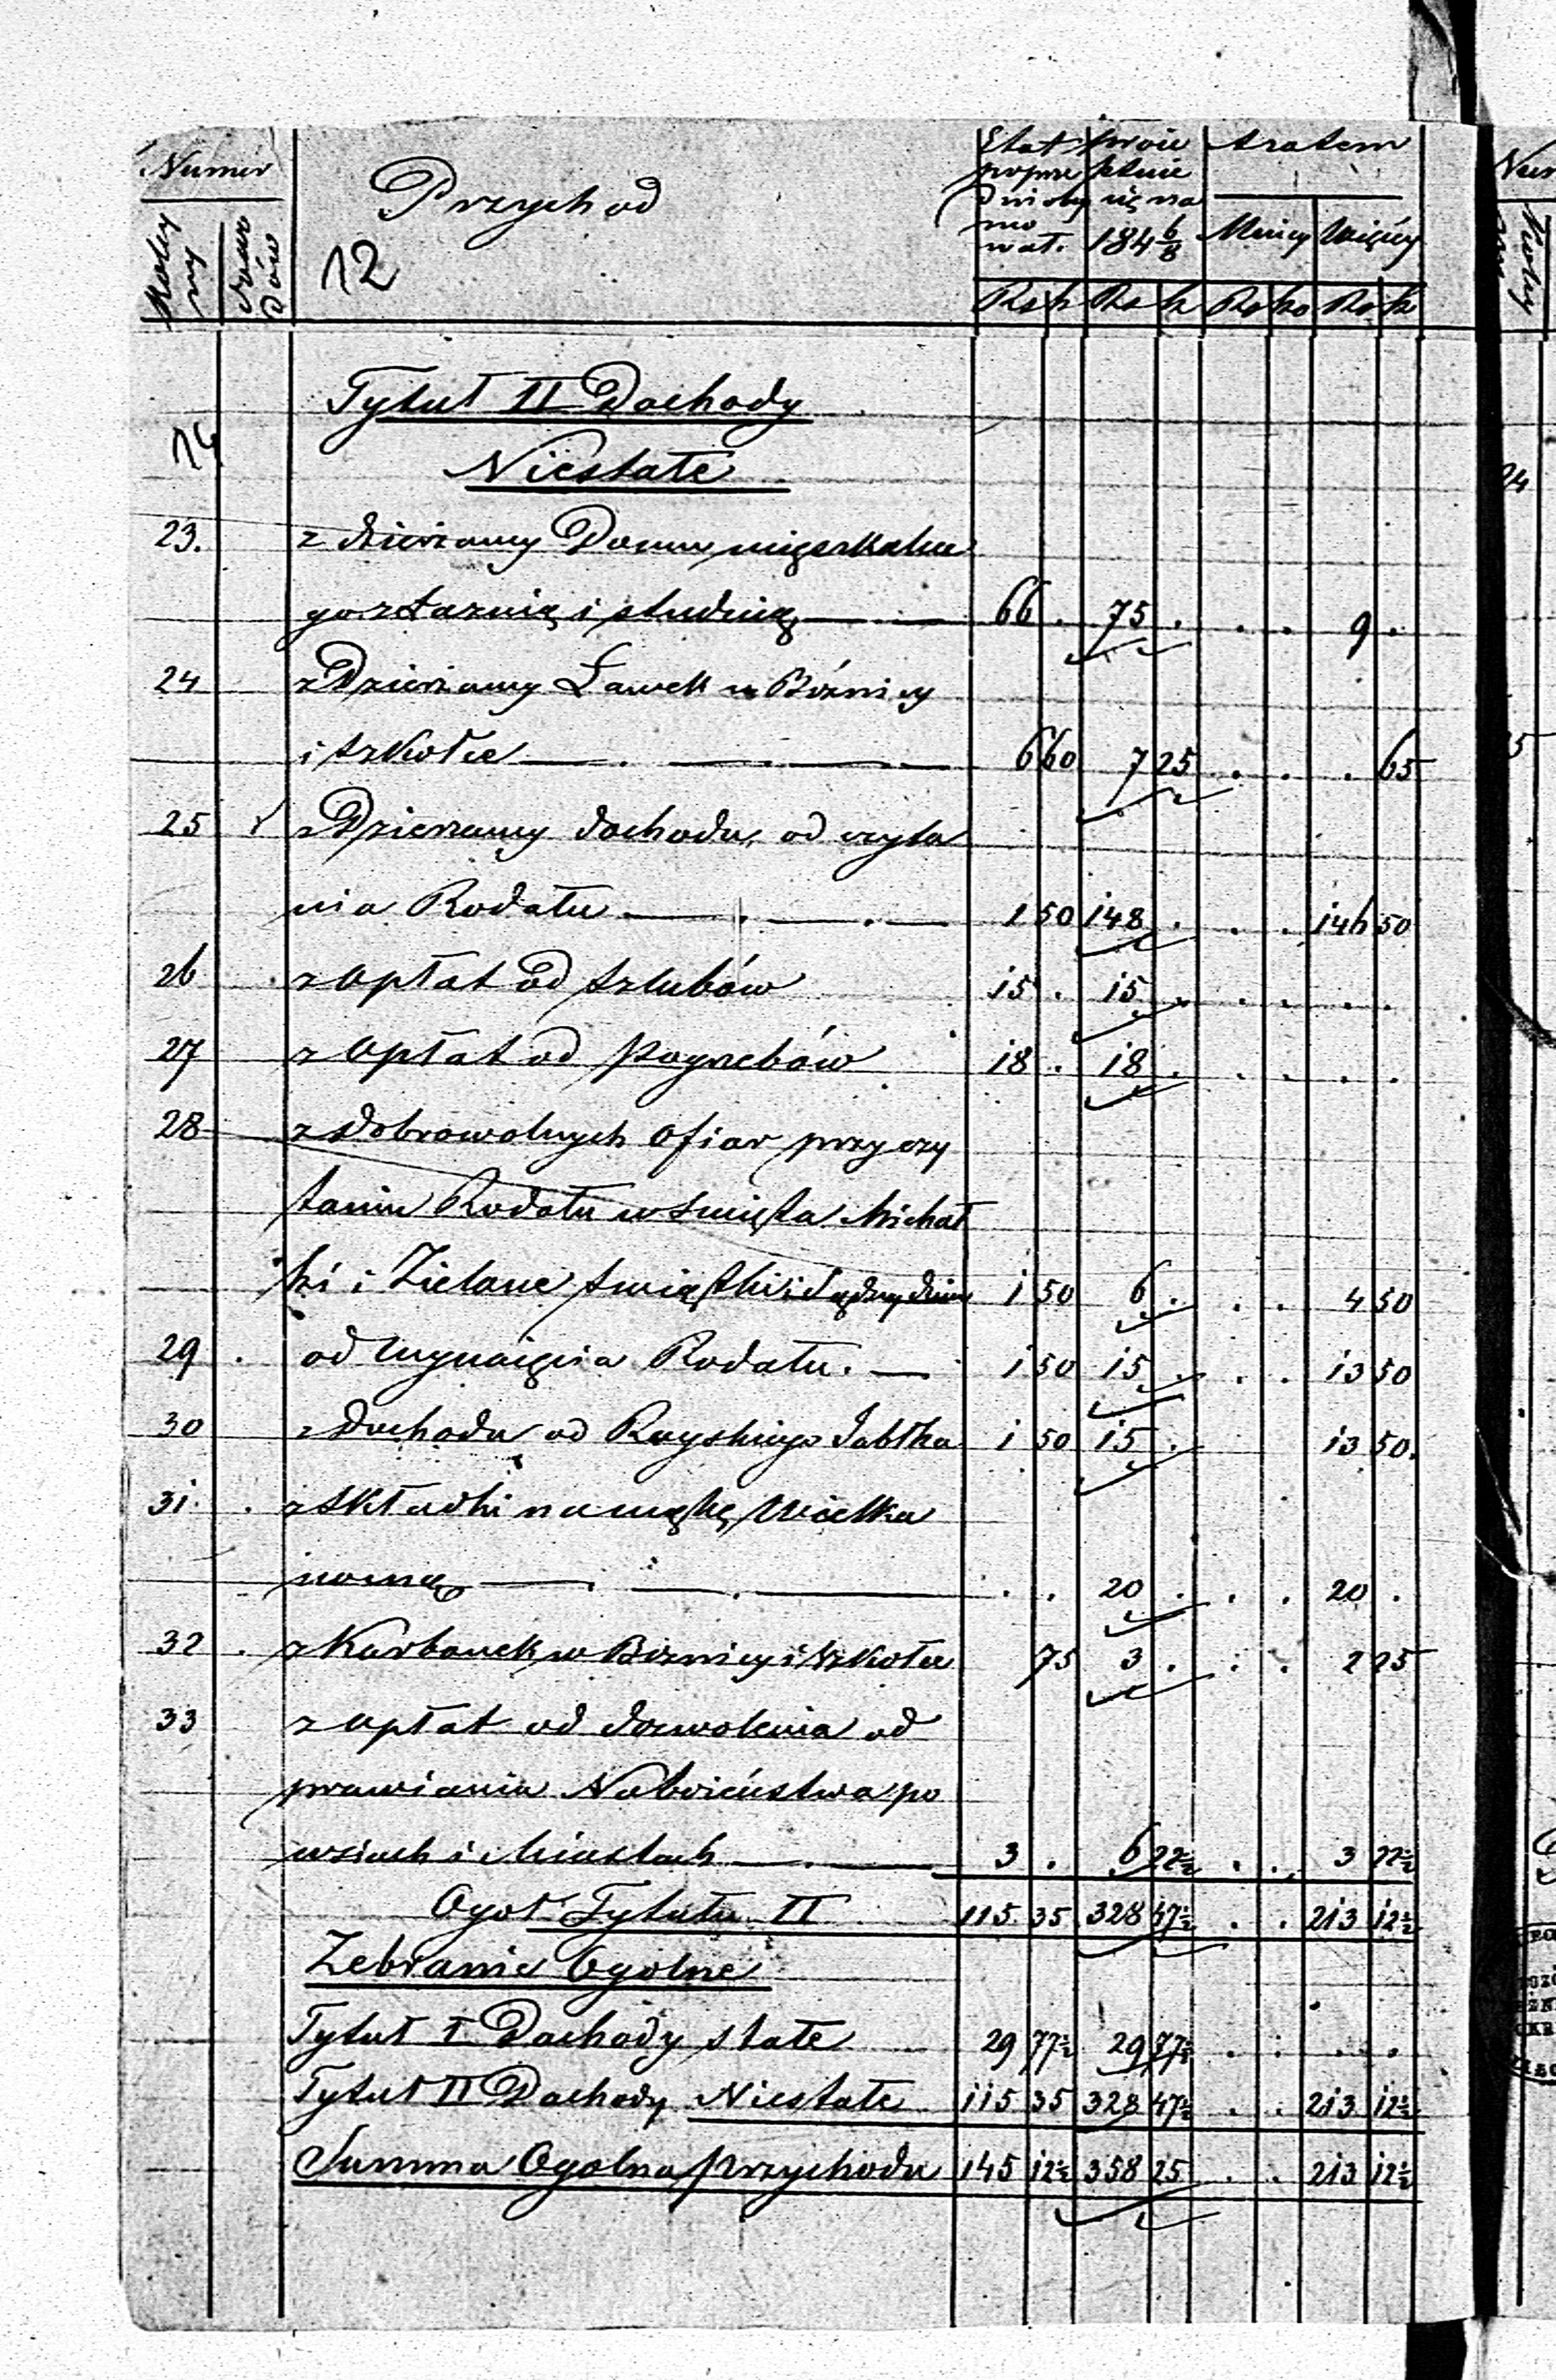 Numer
Przychod
12
Etat poprze dnio obo mo wał.
proie ktuie się na 184 6/8
Zratem
Mniey Więcey
Rs k Rs k Rs ko Rs k
Tytuł II Dochody
14
Niestałe
23. z dzierzawy Domu mięszkalne
go z łaznią i studnią 66 . 75 . . . 9 .
24 z Dzierzawy Ławek w Bóznicy
i szkole 6 60 7 25 . . . 65
25 z Dzierzawy dochodu od czyta
nia Rodału 1 50 148 . . . 146 50
26 z opłat od szlubów 15 . 15 . . . . .
27 z opłat od pogrzebów 18 . 18 . . . . .
28 z dobrowolnych ofiar przy czy
taniu Rodału w swięta Michał
ki i Zielone swiątki i Sądny dzien 1 50 6 . . . 4 50
29 . od wynaięcia Rodału. 1 50 15 . . . 13 50
30 z Dochodu od Rayskiego Jabłka 1 50 15 . 13 50.
31. . z składki na mąkę Wielka
nocną . . 20 . . . 20 .
32 . z Karbonek w Boznicy i szkole 75 3 . . . 2 25
33 z opłat od dozwolenia od
prawiania Nabozeństwa po
wsiach i Miastach 3 . 6 22½ . . 3 22½
Ogoł Tytułu II 115 35 328 47½ . . 213 12½
Zebranie Ogolne
Tytuł I Dochody stałe 29 77½ 29 77½ . . . .
Tytuł II Dochody Niestałe 115 35 328 47½ . . 213 12½
Summa Ogolna przychodu 145 12½ 358 25 . . 213 12½